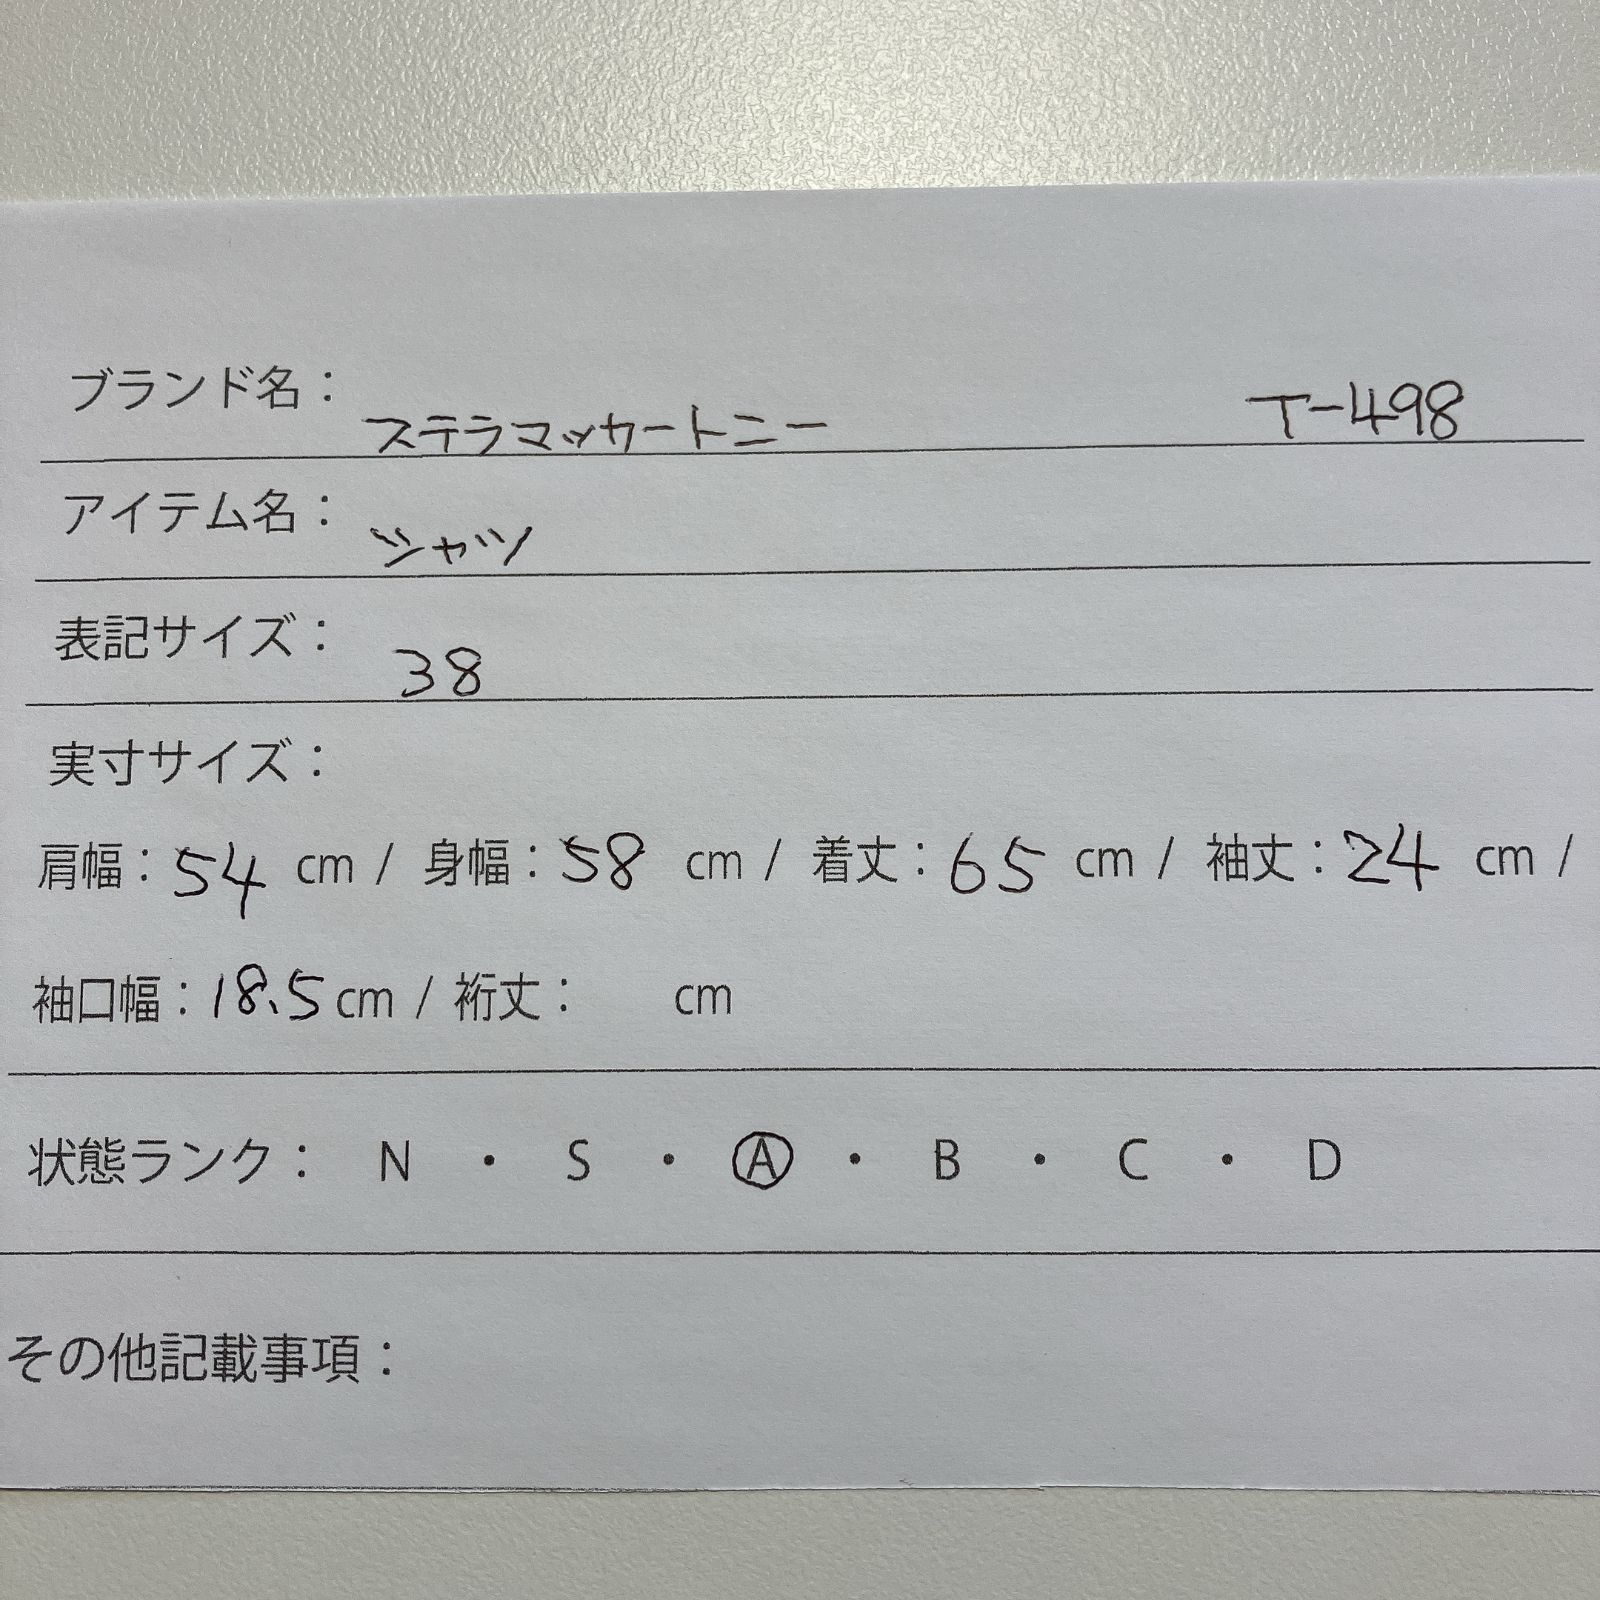 ブランド名： ステラマッカートニー T-498
アイテム名： シャツ
表記サイズ： 38
実寸サイズ：
肩幅：54 cm / 身幅：58 cm / 着丈：65 cm / 袖丈：24 cm /
袖口幅：18.5 cm / 裄丈： cm
状態ランク： N ・ S ・ Ⓐ ・ B ・ C ・ D
その他記載事項：